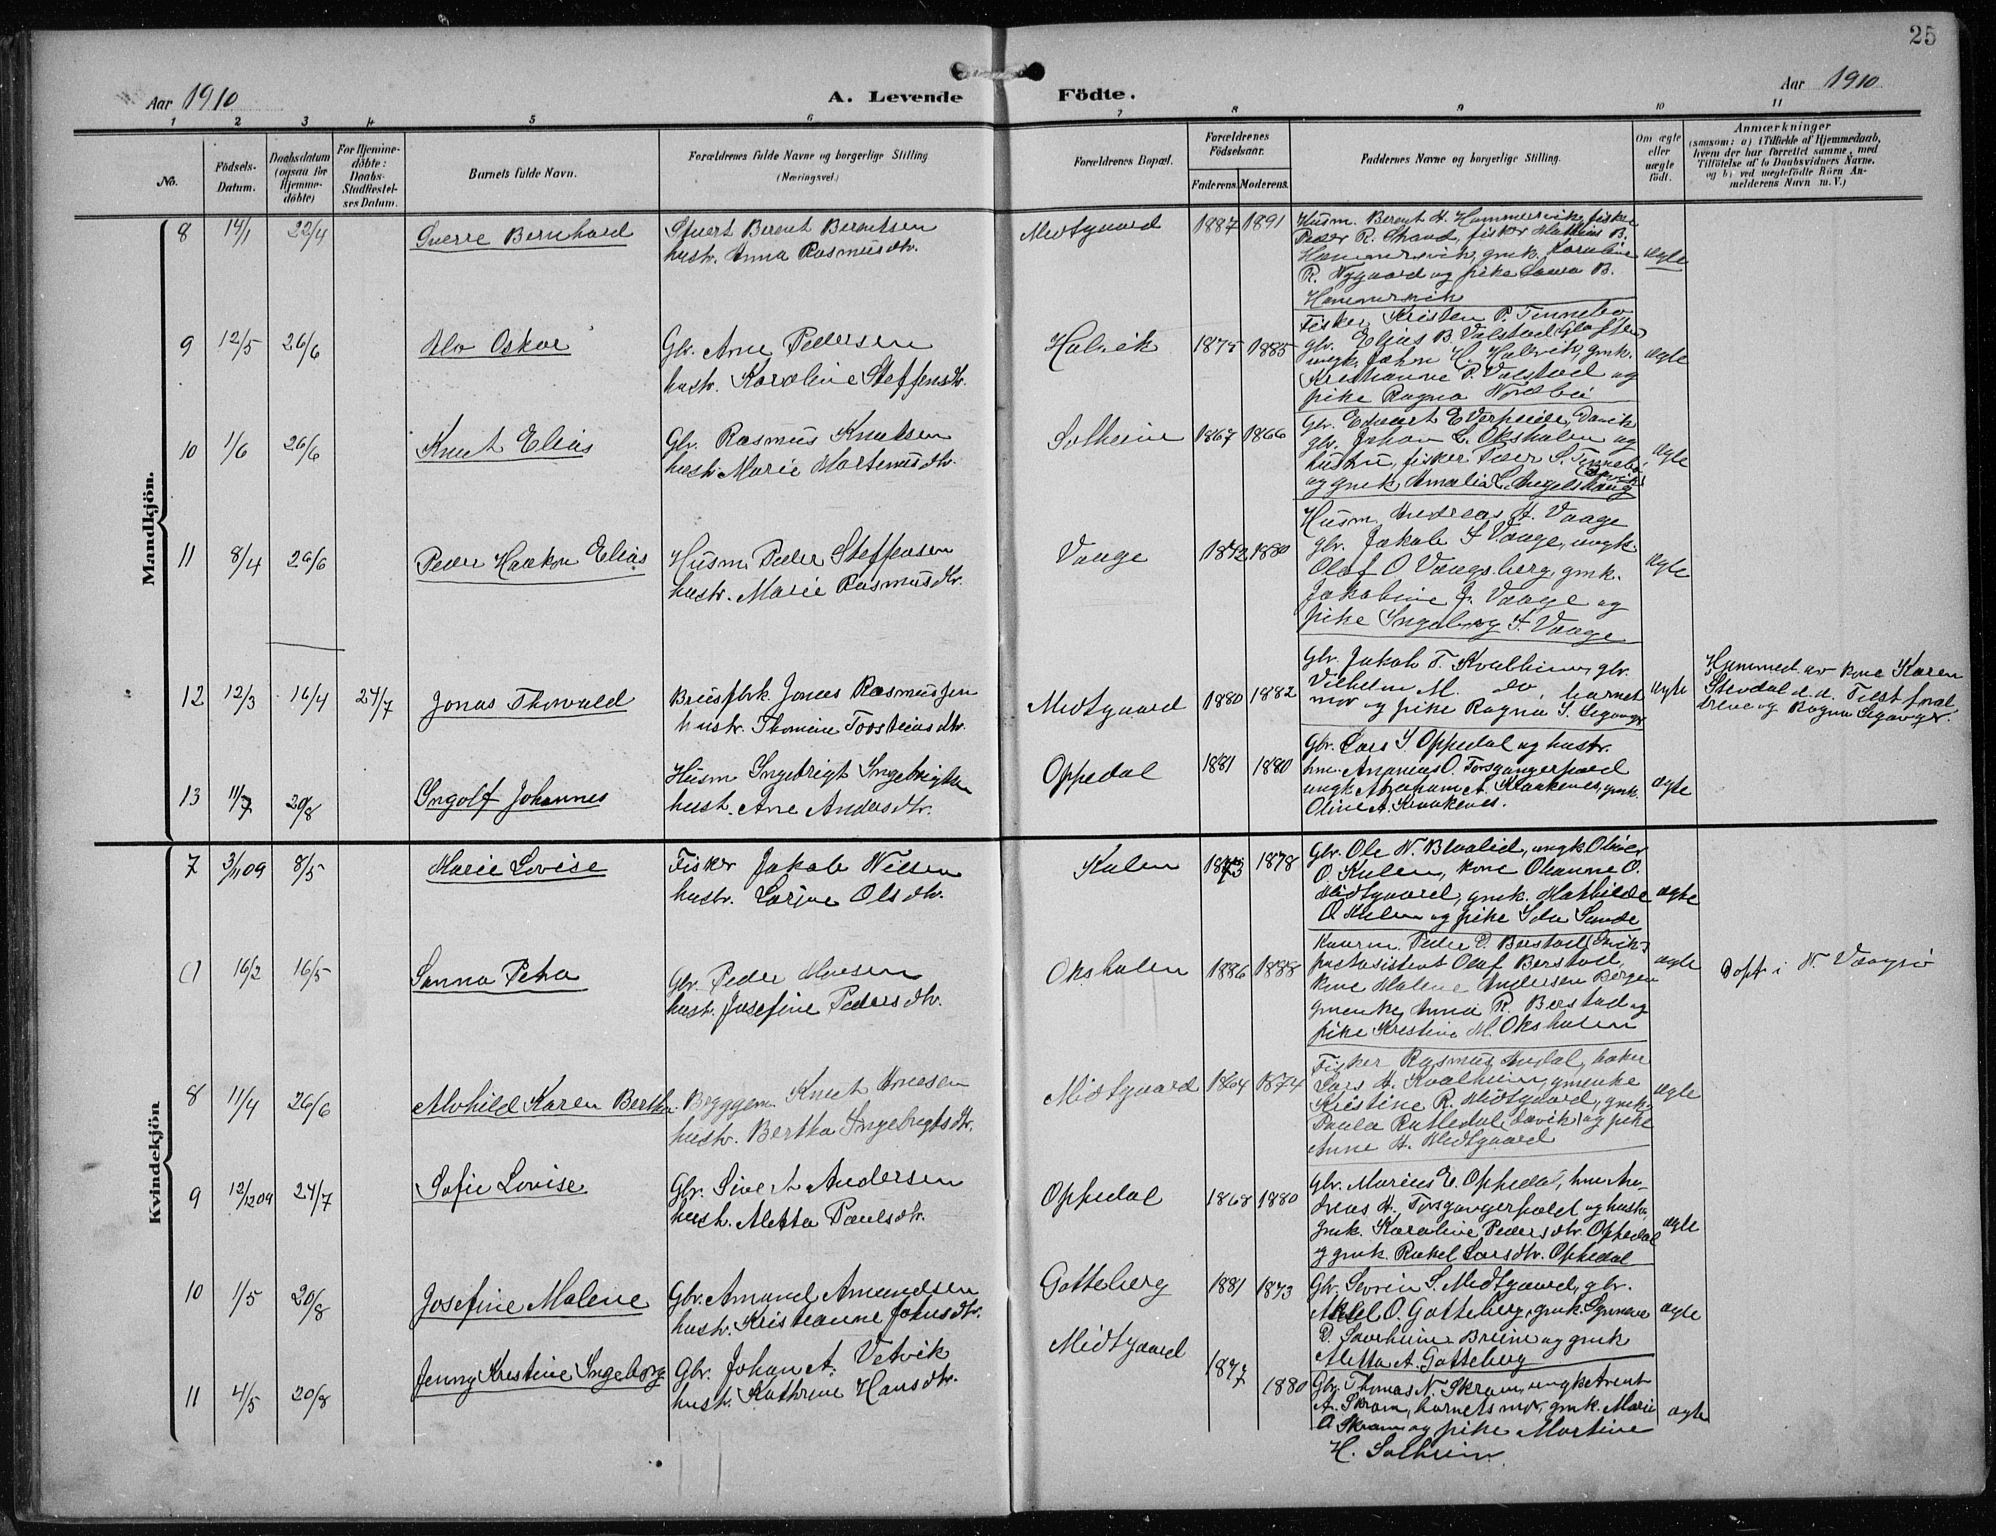 25
Aar 1910
A. Levende Födte.
Aar 1910
1 2 3 4 5 6 7 8 9 10 11
No.
Födsels-Datum.
Daabsdatum (ogsaa for Hjemmedöbte)
For Hjemmedöbte: Daabs-Stadfæstelses Datum.
Barnets fulde Navn.
Forældrenes fulde Navne og borgerlige Stilling (Næringsvei.)
Forældrenes Bopæl.
Forældrenes Födselsaar.
Faderens. Moderens.
Faddernes Navne og borgerlige Stilling.
Om ægte eller uægte födt.
Anmærkninger
(saasom: a) i Tilfælde af Hjemmedaab, hvem der har forrettet samme, med Tilföielse af to Daabsvidners Navne. og b) ved uegtefödte Börn Anmelderens Navn m. V.)
Mandkjön.
8 14/1 22/4 Sverre Bernhard
Sivert Berent Berentsen
hustr. Anna Rasmusdtr.
Midtgaard 1887 1891
Husm. Berent H. Hammersvik, fisker
Peder R. Strand, fisker Mathias B.
Hammersvik, gmk. Karoline
R. Nygaard og pike Laura B.
Hammersvik
ægte
9 12/5 26/6 Alv Oskar
Gbr. Arne Pedersen
hustr. Karoline Steffensdtr.
Halvik 1875 1885
Fisker Kristen P. Tennebø
gbr. Elias B. Valstad
ungk. Johan H. Halvik, gmk.
Kristianne P. Valstad og
pike Ragna Nordbø
ægte
10 1/6 26/6 Knut Elias
Gbr. Rasmus Knutsen
hustr. Marie Martinusdtr.
Solheim 1867 1866
gbr. Johan L. Oksholen og
hustru, fisker Peder S. Tennebø,
og gmk. Amalia L. Angelshaug
ægte
11 8/4 26/6 Peder Haakon Elias
Husm. Peder Steffensen
hustr. Marie Rasmusdtr.
Vaage 1872 1880
Husm. Andreas H. Vaage
gbr. Jakob A Vaage, ungk.
Olaf O Vaagsberg, gmk.
Jakobine J. Vaage og
pike Ingeborg A. Vaage
ægte
12 12/3 16/4 24/7 Jonas Thorvald
Brusfbrk. Jonas Rasmussen
hustr. Thomine Torsteinsdtr.
Midtgaard 1880 1882
Gbr. Jakob T. Kvalheim, gbr.
Vilhelm M. do, barnets
mor og pike Ragna S. Seganger
ægte
Hjemmed. av kone Karen
Stevdal
og Ragna Seganger.
13 11/7 20/8 Ingolf Johannes
Husm Ingebrigt Ingebrigtsen
hust. Ane Andersdtr.
Oppedal 1881 1880
Gbr. Lars I Oppedal og hustr.
hm. Ananias O. Torsgangerpold
ungk Abraham A. Kraakenes, gmk.
Oline A. Kraakenes.
ægte
Kvindekjön
7 3/11 09 8/5 Marie Lovise
Fisker Jakob Nilsen
hustr. Sørine Olsdtr.
Kulen 1873 1878
Gbr. Ole N. Blaalid, ungk Oliver
O. Kulen, kone Oleanne O.
Midtgaard, gmk. Mathilde
O Kulen og pike Ida Sande
ægte
16/2 16/5 Sanna Petra
Gbr. Peder Monsen
hust. Josefine Pedersdtr.
Oksholen 1886 1888
Kaarm. Peder P. Berstad
postasistent Olaf Berstad,
kone Malene Andersen Bergen
gmenke Anna R. Berstad og
pike Kristine M. Oksholen
ægte
Døpt i N. Vaagsø
8 11/4 26/6 Alvhild Karen Bertha
Byggem. Knut Knutsen
hustr. Bertha Ingebrigtsdtr.
Midtgaard 1864 1874
Fisker Rasmus Audal, baker
Lars H. Kvalheim, gmenke
Kristine R. Midtgaard, gmk
Paula Rutledal (Davik) og pike
Anne H. Midtgaard
ægte
9 12/12 09 24/7 Sofie Lovise
Gbr. Sivert Andersen
hust. Aletta Paulsdtr.
Oppedal 1868 1880
Gbr. Marius E. Oppedal, hm An-
dreas H. Torsgangerpold og hustr,
gmk. Karoline Pedersdtr. Oppedal
og gmk. Rakel Larsdtr. Oppedal
ægte
10 1/5 20/8 Josefine Malene
Gbr. Amund Amundsen
hustr. Kristianne Johnsdtr.
Gotteberg 1881 1873
Gbr. Sevrin S. Midtgaard, gbr.
Aksel O. Gotteberg, gmk Synneve
P. Saverheim Breim og gmk
Aletta A. Gotteberg
ægte
11 4/5 20/8 Jenny Kristine Ingeborg
Gbr. Johan A. Vetvik
hust. Kathrine Hansdtr.
Midtgaard 1877 1880
Gbr. Thomas N. Skram, ungk Arent
A. Skram, barnets mor, gmk. Marie
A Skram og pike Martine
H. Solheim.
ægte